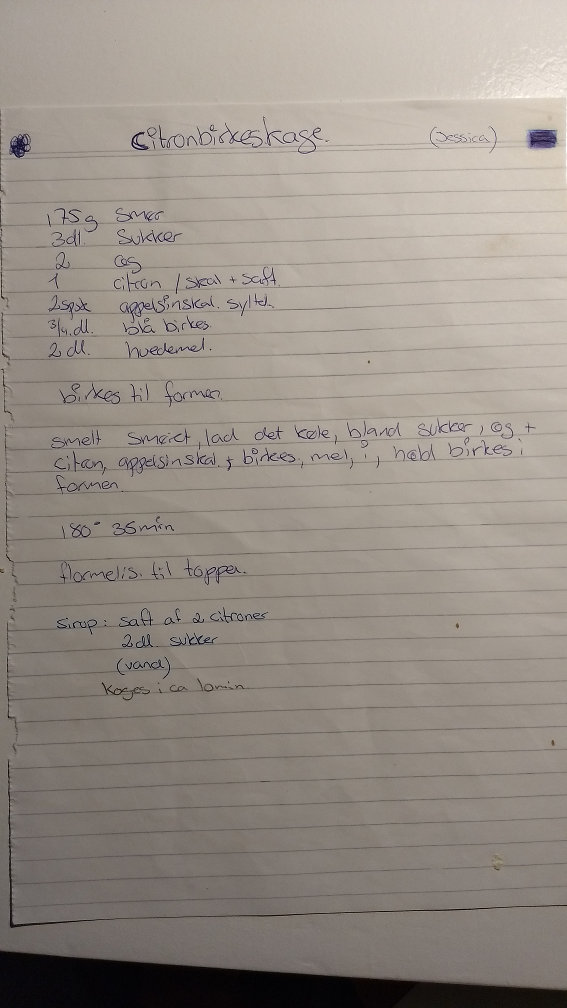 Citronbirkeskage. (Jessica)
175g smør
3dl. sukker
2 æg
1 citron / skal + saft.
2spsk appelsinskal. syltet.
3/4.dl. blå birkes.
2 dl. hvedemel.
birkes til formen.
smelt smøret, lad det køle, bland sukker, æg +
citron, appelsinskal, + birkes, mel, i, hæld birkes i
formen.
180° 35min
flormelis. til toppen.
sirup: saft af 2 citroner
2dl. sukker
(vand)
Koges i ca 10min.